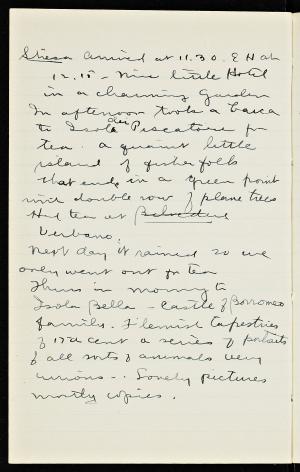 Stresa arrived at 11.30. E H at
12.15 - Nice little Hotel
in a charming Garden
In afternoon took a barca
to Isola dei Piscatorie for
tea. a quaint little
island of fisher folks
that ends in a green point
with double row of plane trees
Had tea at Belvedere
Verbano.
Next day it rained so we
only went out for tea
Thurs in morning to
Isola Bella - Castle of Borromeo
family. Flemish tapestries
of 17th cent a series of portraits
of all sorts of animals very
curious -. Lovely pictures
mostly copies.